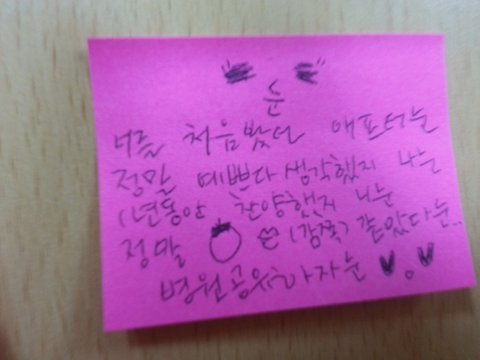 눈
너를 처음봤던 애프터눈
정말 예쁘다 생각했지 나는
1년동안 찬양했지 너는
정말 (깜쪽) 같았다눈..
병원 공유하자눈